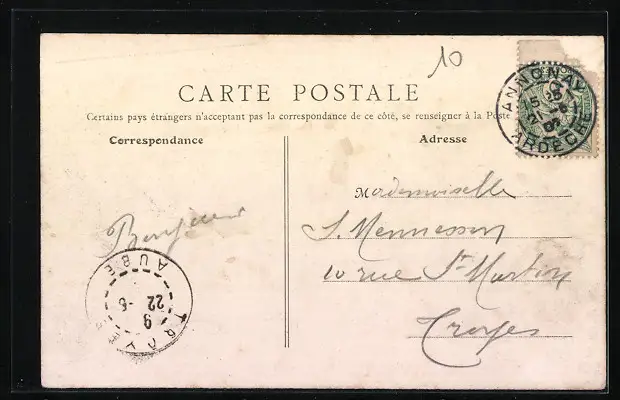 10
CARTE POSTALE
Certains pays étrangers n'acceptant pas la correspondance de ce côté, se renseigner à la Poste
Correspondance
Adresse
ANNONAY
15
21
ARDECHE
Mademoiselle
S. Mennesson
10 rue St Martin
Troyes
Bonjour
AUBE
22 -6
9